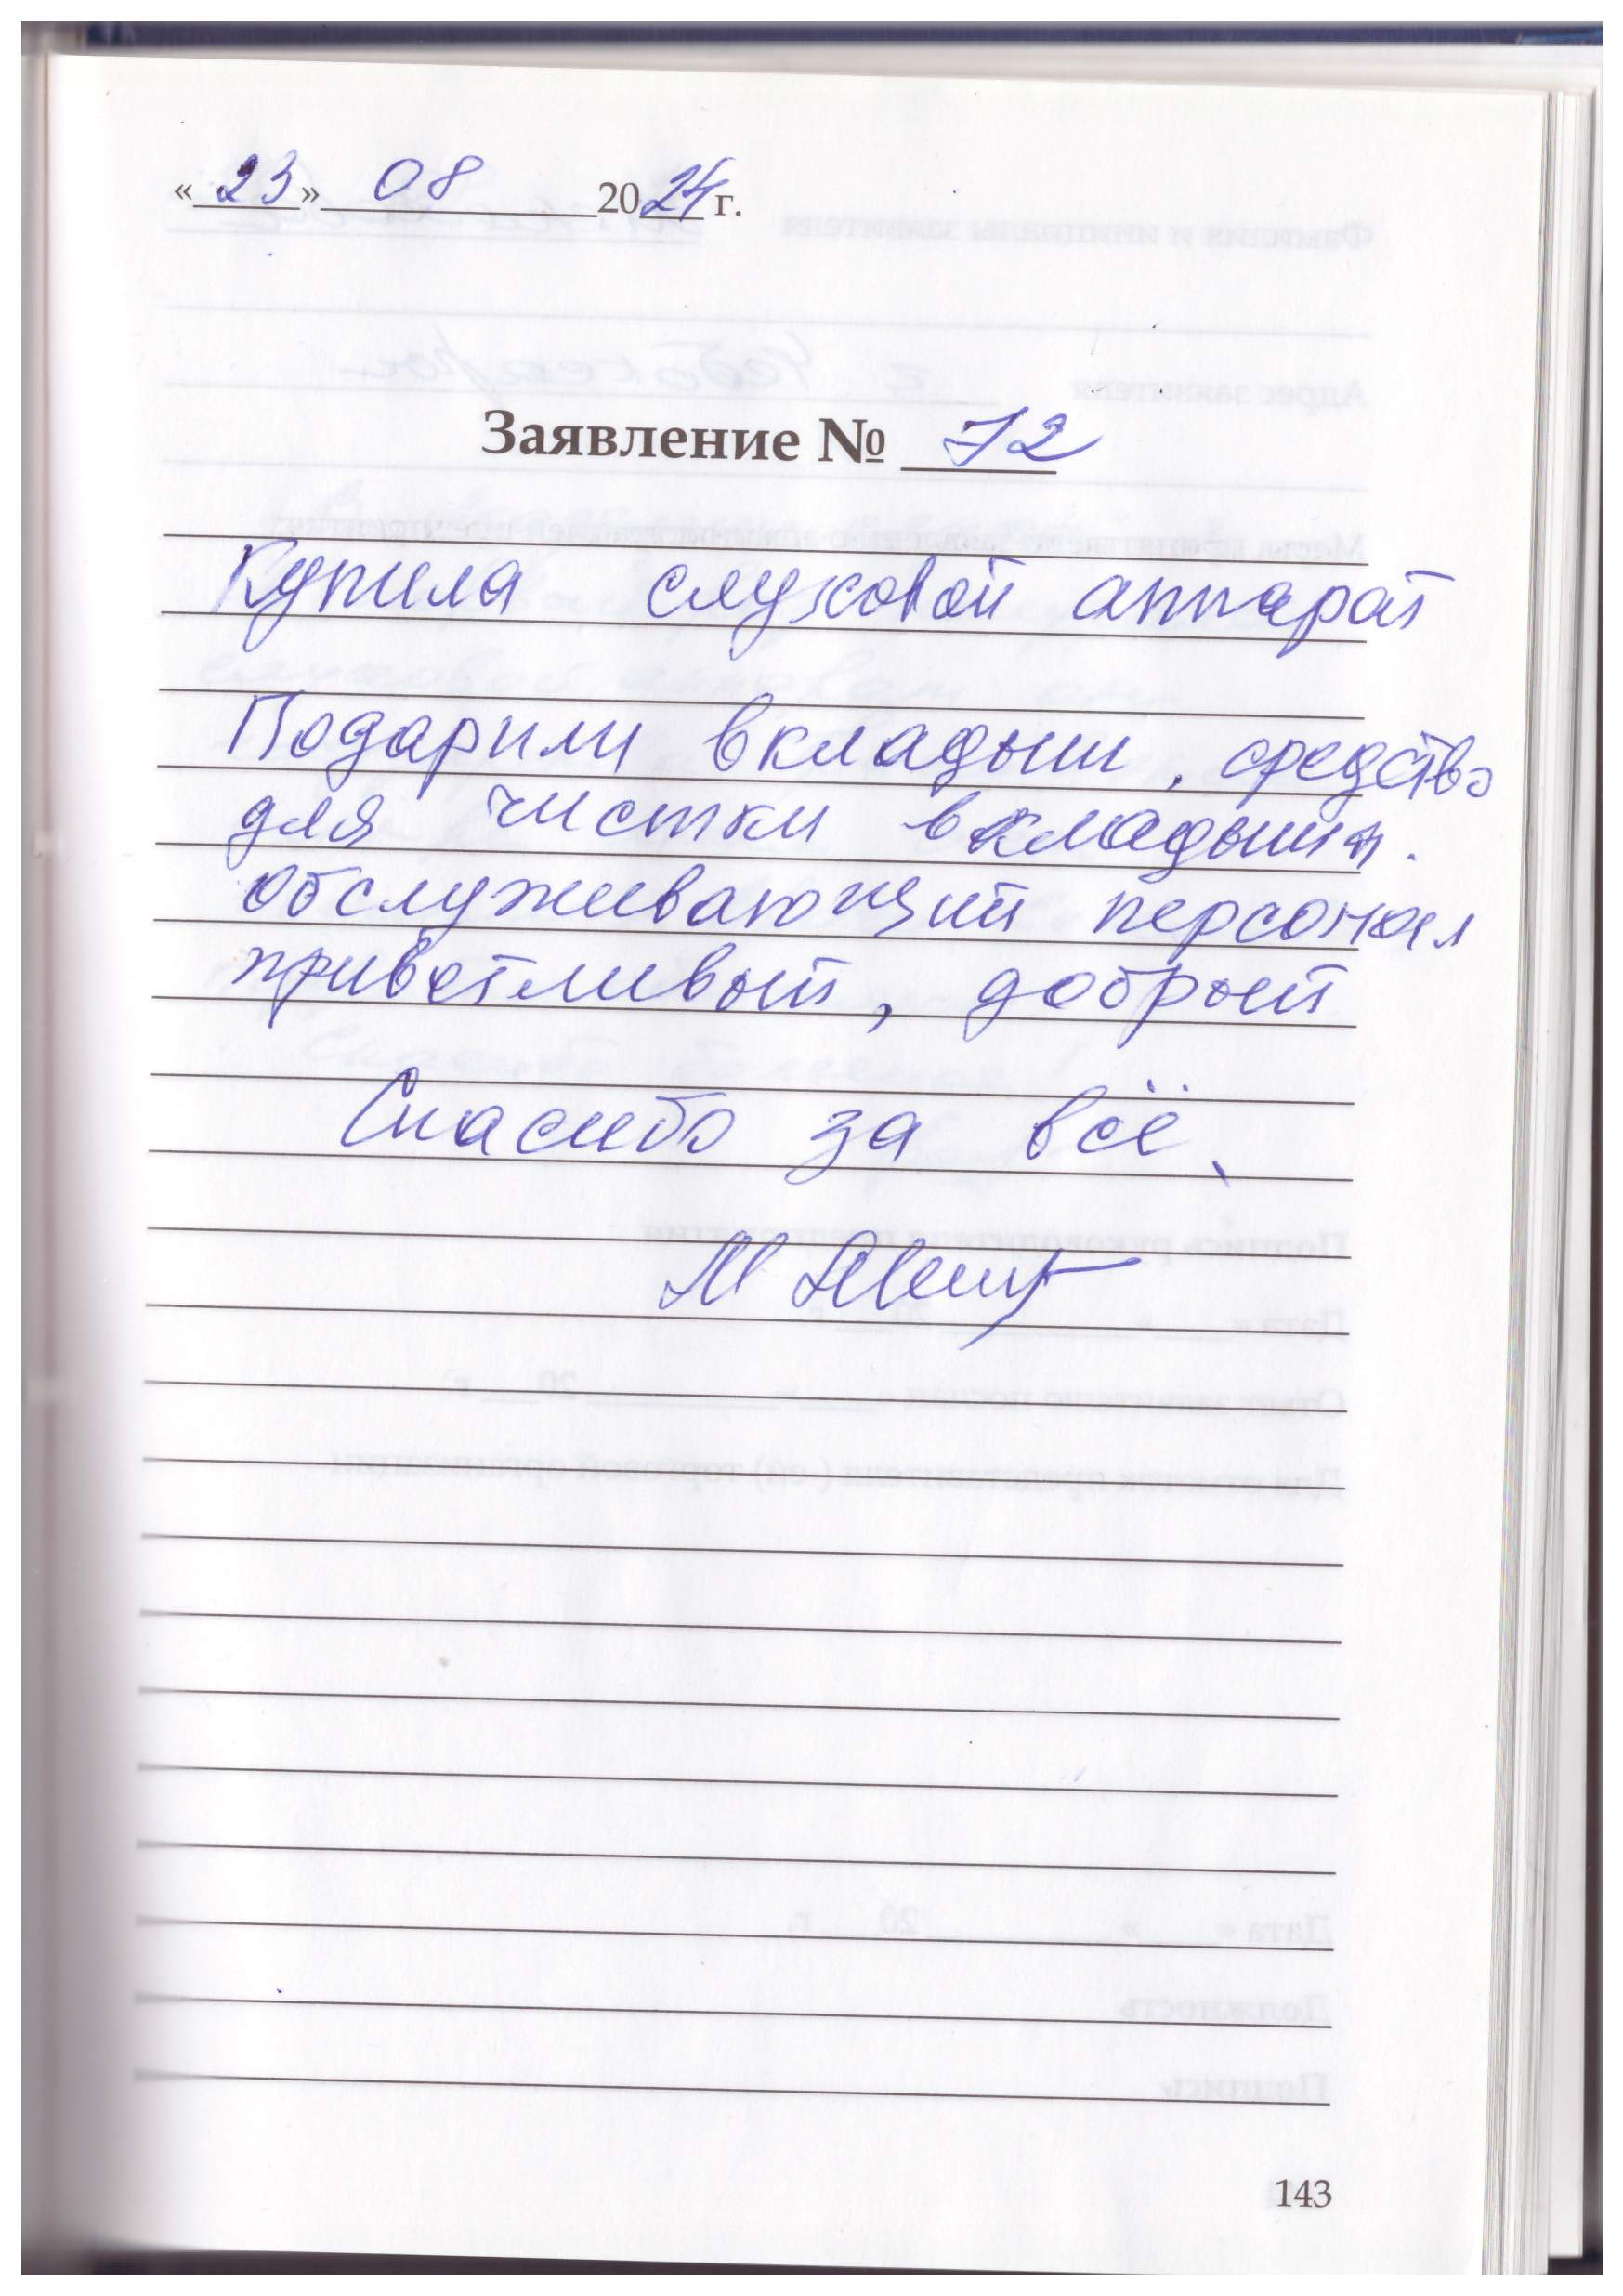 «23» 08 2024 г.
Заявление № 72
Купила слуховой аппарат
Подарили вкладыш, средство
для чистки вкладыша.
Обслуживающий персонал
приветливый, добрый
Спасибо за всё.
143